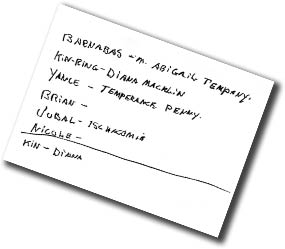 BARNABAS - m. ABIGAIL TEMPANY.
KIN-RING - DIANA MACKLIN
YANCE - TEMPERANCE PENNY.
BRIAN -
JUBAL -
NICOLE -
KIN - DIANA